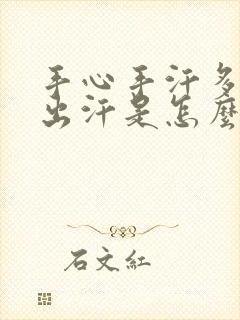 手心手汗多
出汗是怎麼
石文紅